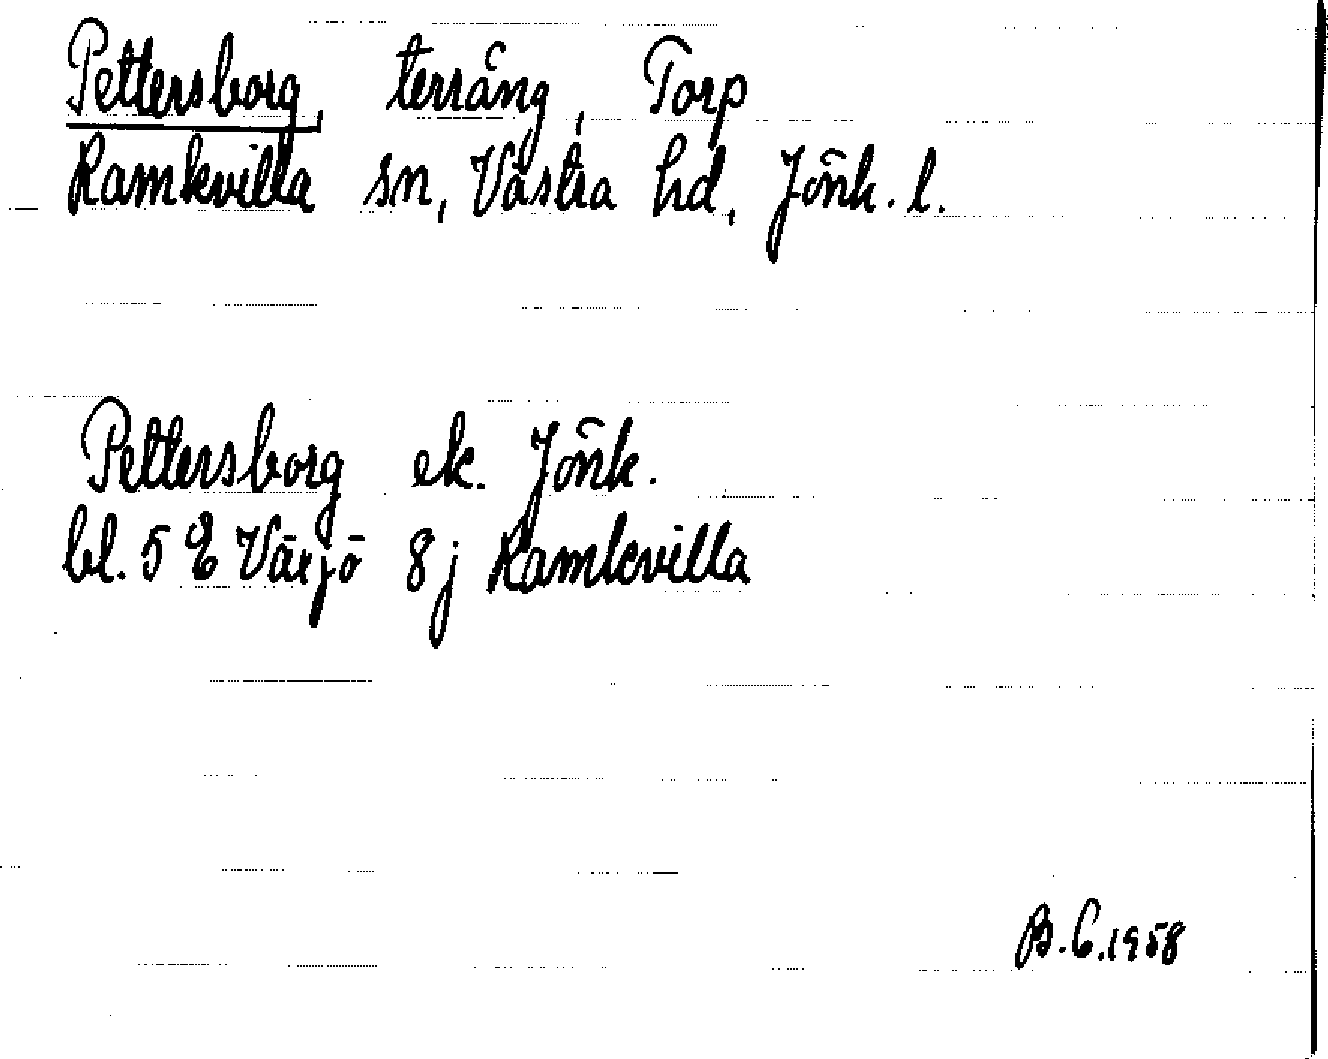 Pettersborg, terräng, Torp
Ramkvilla sn, Västra hd, Jönk. l.
Pettersborg ek. Jönk.
bl. 5 E Växjö 8j Ramkvilla
B.C.1958